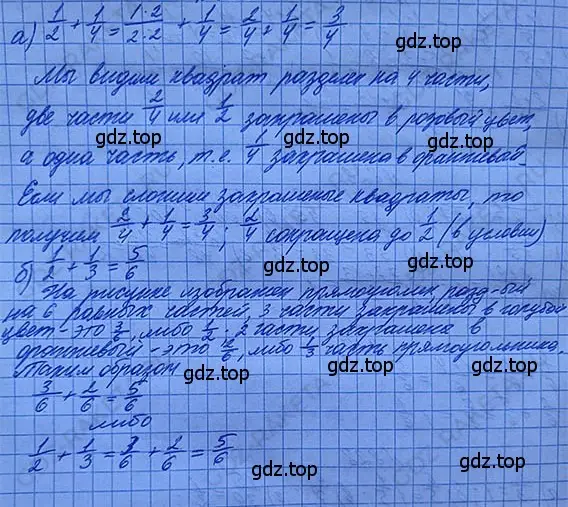 а) 1/2 + 1/4 = 1·2/2·2 + 1/4 = 2/4 + 1/4 = 3/4
gdz.top
Мы видим квадрат разделен на 4 части,
gdz.top
две части 2/4 или 1/2 закрашены в розовый цвет,
gdz.top gdz.top
а одна часть, т.е. 1/4 закрашена в оранжевый.
gdz.top
Если мы сложим закрашеные квадраты, то
получим 2/4 + 1/4 = 3/4; 2/4 сокращена до 1/2 (в условии)
gdz.top gdz.top
б) 1/2 + 1/3 = 5/6
gdz.top
На рисунке изображен прямоуголик разд-ый
на 6 равных частей, 3 части закрашены в голубой
gdz.top
цвет - это 3/6, либо 1/2. 2 части закрашена в
gdz.top
оранжевый - это 2/6, либо 1/3 часть прямоугольника.
Таким образом
gdz.top
3/6 + 2/6 = 5/6
либо
gdz.top
1/2 + 1/3 = 3/6 + 2/6 = 5/6
gdz.top gdz.top